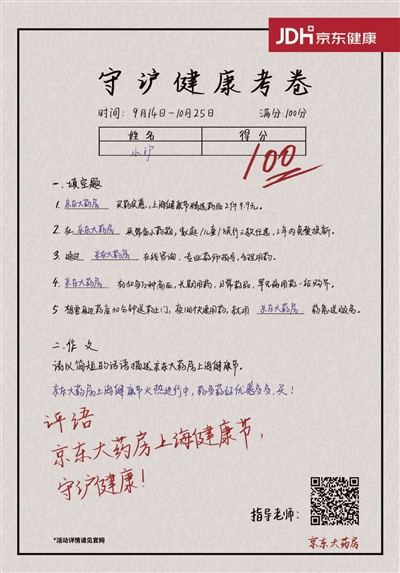 JDH 京东健康
守沪健康考卷
时间: 9月14日-10月25日 满分:100分
姓名 得分
小沪 100
一.填空题
1. 京东大药房 买药实惠,上海健康节精选药品2件9.9元。
2. 在 京东大药房
3. 通过 京东大药房 在线咨询,专业药师指导,合理用药。
4. 京东大药房 有50多万种商品,长期用药,日常药品,罕见病用药一站购齐。
5. 想要身边药店30分钟送药上门,夜间快速用药,就用 京东大药房 药急送服务。
二.作文
请以简短的话语描述京东大药房上海健康节。
京东大药房上海健康节火热进行中,药多药好优惠多多,买!
评语
京东大药房上海健康节,
守沪健康!
指导老师:
京东大药房
*活动详情请见官网